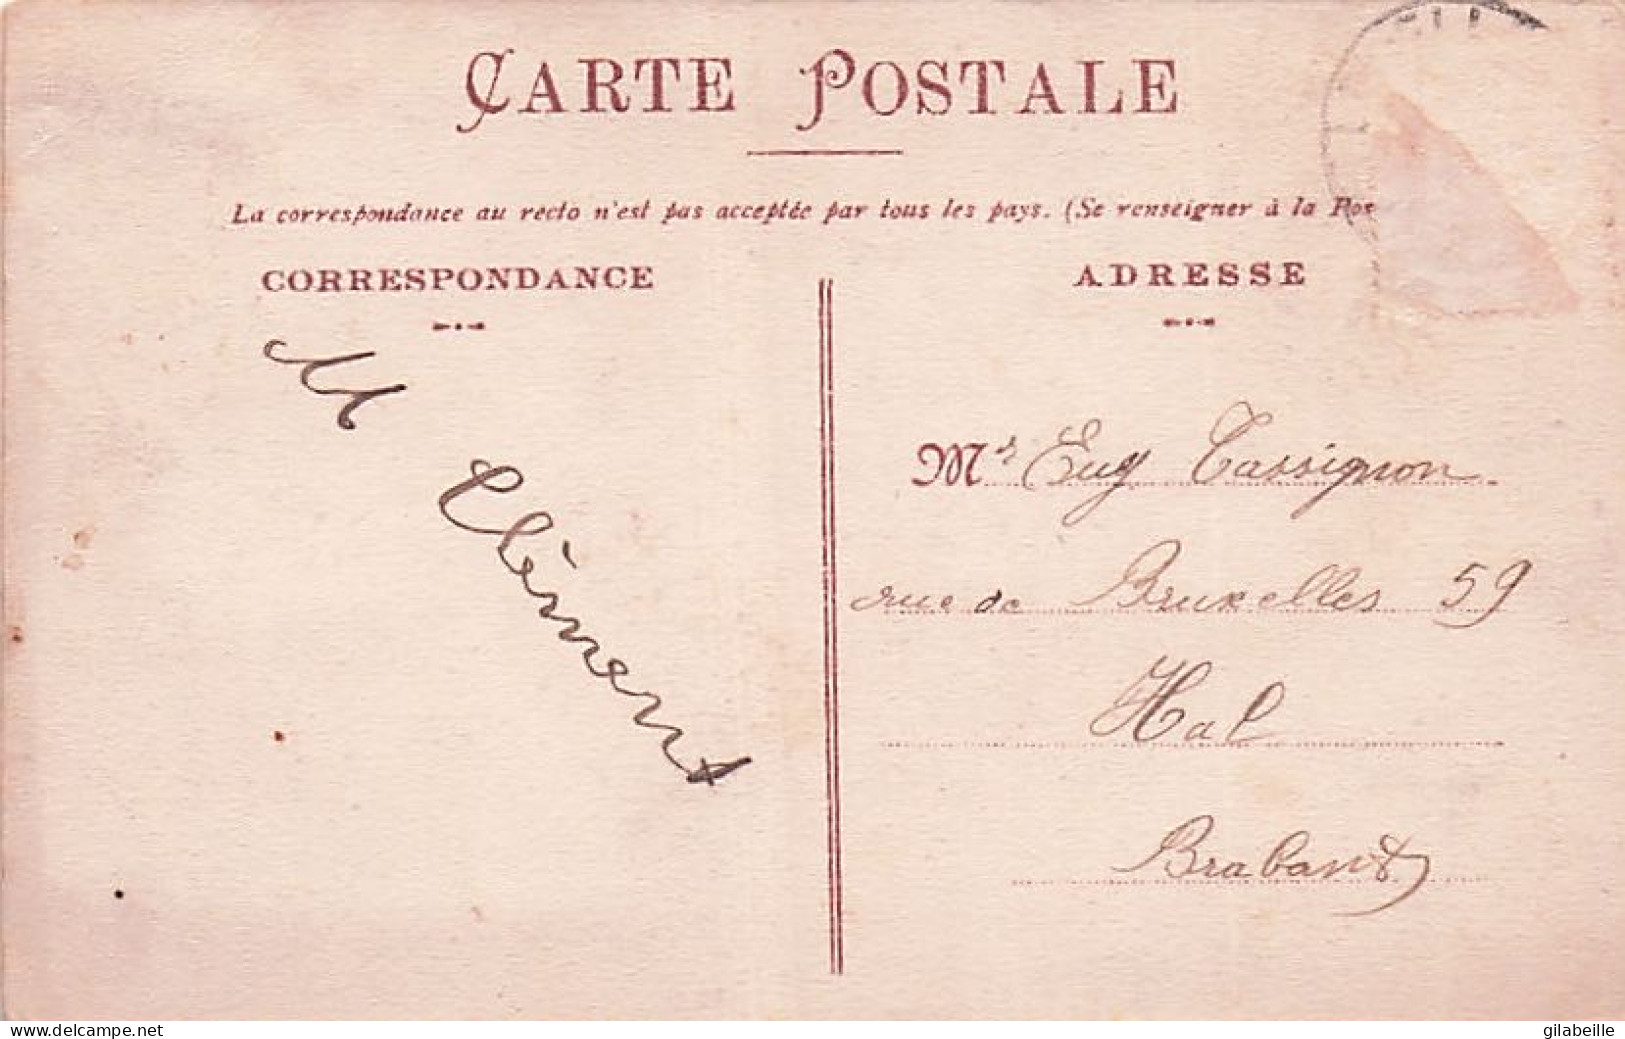 CARTE POSTALE
La correspondance au recto n'est pas acceptée par tous les pays. (Se renseigner à la Pos
CORRESPONDANCE
ADRESSE
M Clément
Mr Eug Tassignon
rue de Bruxelles 59
Hal
Brabant
www.delcampe.net
gilabeille